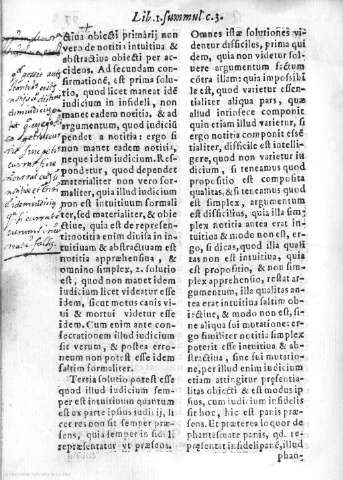 Lib. 1. summul c. 3.
ctiua obiecti primarij non
vero de notitis intuitiua &
abstractiua obiecti per ac-
cidens. Ad secundam con-
firmationē, est prima solu-
tio, quod licet maneat idē
iudicium in infideli, non
manet eadem notitia, & ad
argumentum, quod iudiciū
pendet a notitia: ergo si
non manet eadem notitia,
neque idem iudicium. Res-
pondetur, quod dependet
materialiter non vero for-
maliter, quia illud iudicium
non est intuitiuum formali
ter, sed materialiter, & obie
ctiue, quia est de represen-
tinotitia enim diuisa in in-
tuitiuam & abstractiuam est
notitia appræhensiua, &
omnino simplex, 2. solutio
est, quod non manet idem
iudicium licet videatur esse
idem, sicut motus canis vi-
ui & mortui videtur esse
idem. Cum enim ante con-
secrationem illud iudicium
sit verum, & postea erro-
neum non potest esse idem
saltim formaliter.
Tertia solutio potest esse
quod illud iudicium sem-
per est intuitiuum quantum
est ex parte ipsius iudicij, li
cet res non sit semper præ-
sens, quia semper in fideli
repræsentatur vt præsens.
Omnes istæ solutiones vi-
dentur difficiles, prima qui
dem, quia non videtur sol-
uere argumentum factum
cōtra illam: quia impossibi
le est, quod varietur essen-
tialiter aliqua pars, quæ
aliud intrinsece componit
quin etiam illud varietur, si
ergo notitia componit essē
tialiter, difficile est intelli-
gere, quod non varietur iu-
dicium, si teneamus quod
propositio est composita
qualitas, & si teneamus quod
est simplex, argumentum
est difficilius, quia illa sim-
plex notitia antea erat in-
tuitiua & modo non est, er-
go, si dicas, quod illa quali
tas non est intuitiua, quia
est propositio, & non sim-
plex apprehensio, restat ar-
gumentum, illa qualitas an
tea erat intuitiua saltim ob-
iectiue, & modo non est, si-
ne aliqua sui mutatione: er-
go similiter notitia simplex
poterit esse intuitiua & ab-
stractiua, sine sui mutatio-
ne, per illud enim iudicium
etiam attingitur præsentia-
litas obiecti & est modus ip
sius, cum iudicium infidelis
sit hoc, hic est panis præ-
sens. Et præterea loquor de
phantasmate panis, qd. re-
præsentat infideli panē, illud
phan-